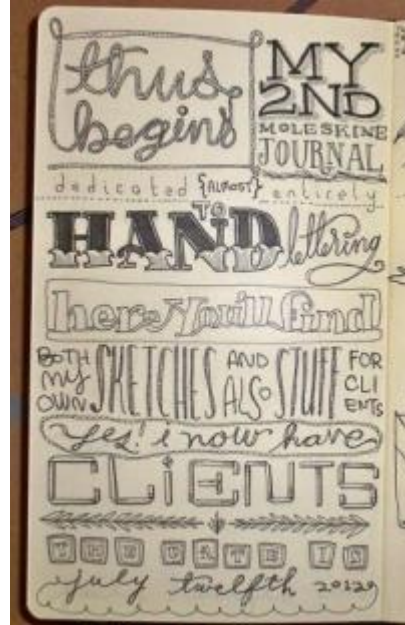 thus begins
MY 2ND MOLESKINE JOURNAL
dedicated {ALMOST} entirely
TO
HAND lettering
here You'll find
BOTH MY OWN SKETCHES AND ALSO STUFF FOR CLIENTS
yes! i now have
CLiENTS
THE DATE IS
july twelfth 2012